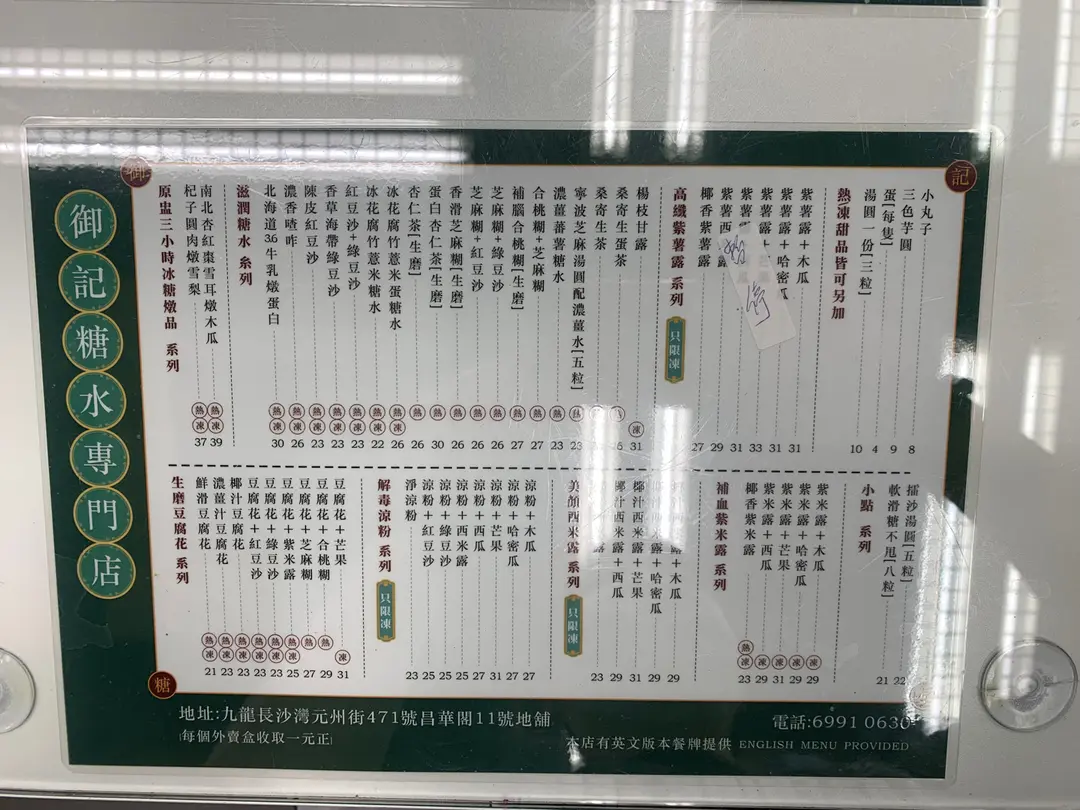 御記糖水專門店
御
記
糖
原盅三小時冰糖燉品 系列
杞子圓肉燉雪梨 熱 凍 37
南北杏紅棗雪耳燉木瓜 熱 凍 39
滋潤糖水 系列
北海道3.6牛乳燉蛋白 熱 凍 30
濃香喳咋 熱 凍 26
陳皮紅豆沙 熱 凍 23
香草海帶綠豆沙 熱 凍 23
紅豆沙+綠豆沙 熱 凍 23
冰花腐竹薏米糖水 熱 凍 22
冰花腐竹薏米蛋糖水 熱 凍 26
杏仁茶[生磨] 熱 26
蛋白杏仁茶[生磨] 熱 30
香滑芝麻糊[生磨] 熱 26
芝麻糊+紅豆沙 熱 26
芝麻糊+綠豆沙 熱 26
補腦合桃糊[生磨] 熱 27
合桃糊+芝麻糊 熱 27
濃薑蕃薯糖水 熱 23
寧波芝麻湯圓配濃薑水[五粒] 熱 23
桑寄生茶
桑寄生蛋茶
楊枝甘露 凍 31
高纖紫薯露 系列 只限凍
椰香紫薯露 27
紫薯西 29
紫薯 31
紫薯露+ 33
紫薯露+哈密瓜 31
紫薯露+木瓜 31
暫停
熱/凍甜品皆可另加
湯圓一份[三粒] 10
蛋[每隻] 4
三色芋圓 9
小丸子 8
生磨豆腐花 系列
鮮滑豆腐花 熱 凍 21
濃薑汁豆腐花 熱 凍 23
椰汁豆腐花 熱 凍 23
豆腐花+紅豆沙 熱 凍 23
豆腐花+綠豆沙 熱 凍 23
豆腐花+紫米露 熱 凍 25
豆腐花+芝麻糊 熱 27
豆腐花+合桃糊 熱 29
豆腐花+芒果 凍 31
解毒涼粉 系列 只限凍
淨涼粉 23
涼粉+紅豆沙 25
涼粉+綠豆沙 25
涼粉+西米露 25
涼粉+西瓜 27
涼粉+芒果 31
涼粉+哈密瓜 27
涼粉+木瓜 27
美顏西米露 系列 只限凍
露 23
椰汁西米露+西瓜 29
椰汁西米露+芒果 31
露+哈密瓜 29
露+木瓜 29
補血紫米露 系列
椰香紫米露 熱 凍 23
紫米露+西瓜 凍 29
紫米露+芒果 凍 31
紫米露+哈密瓜 凍 29
紫米露+木瓜 凍 29
小點 系列
軟滑糖不甩[八粒] 21
擂沙湯圓[五粒] 22
地址:九龍長沙灣元州街471號昌華閣11號地舖
[每個外賣盒收取一元正]
電話:6991 0630
本店有英文版本餐牌提供 ENGLISH MENU PROVIDED